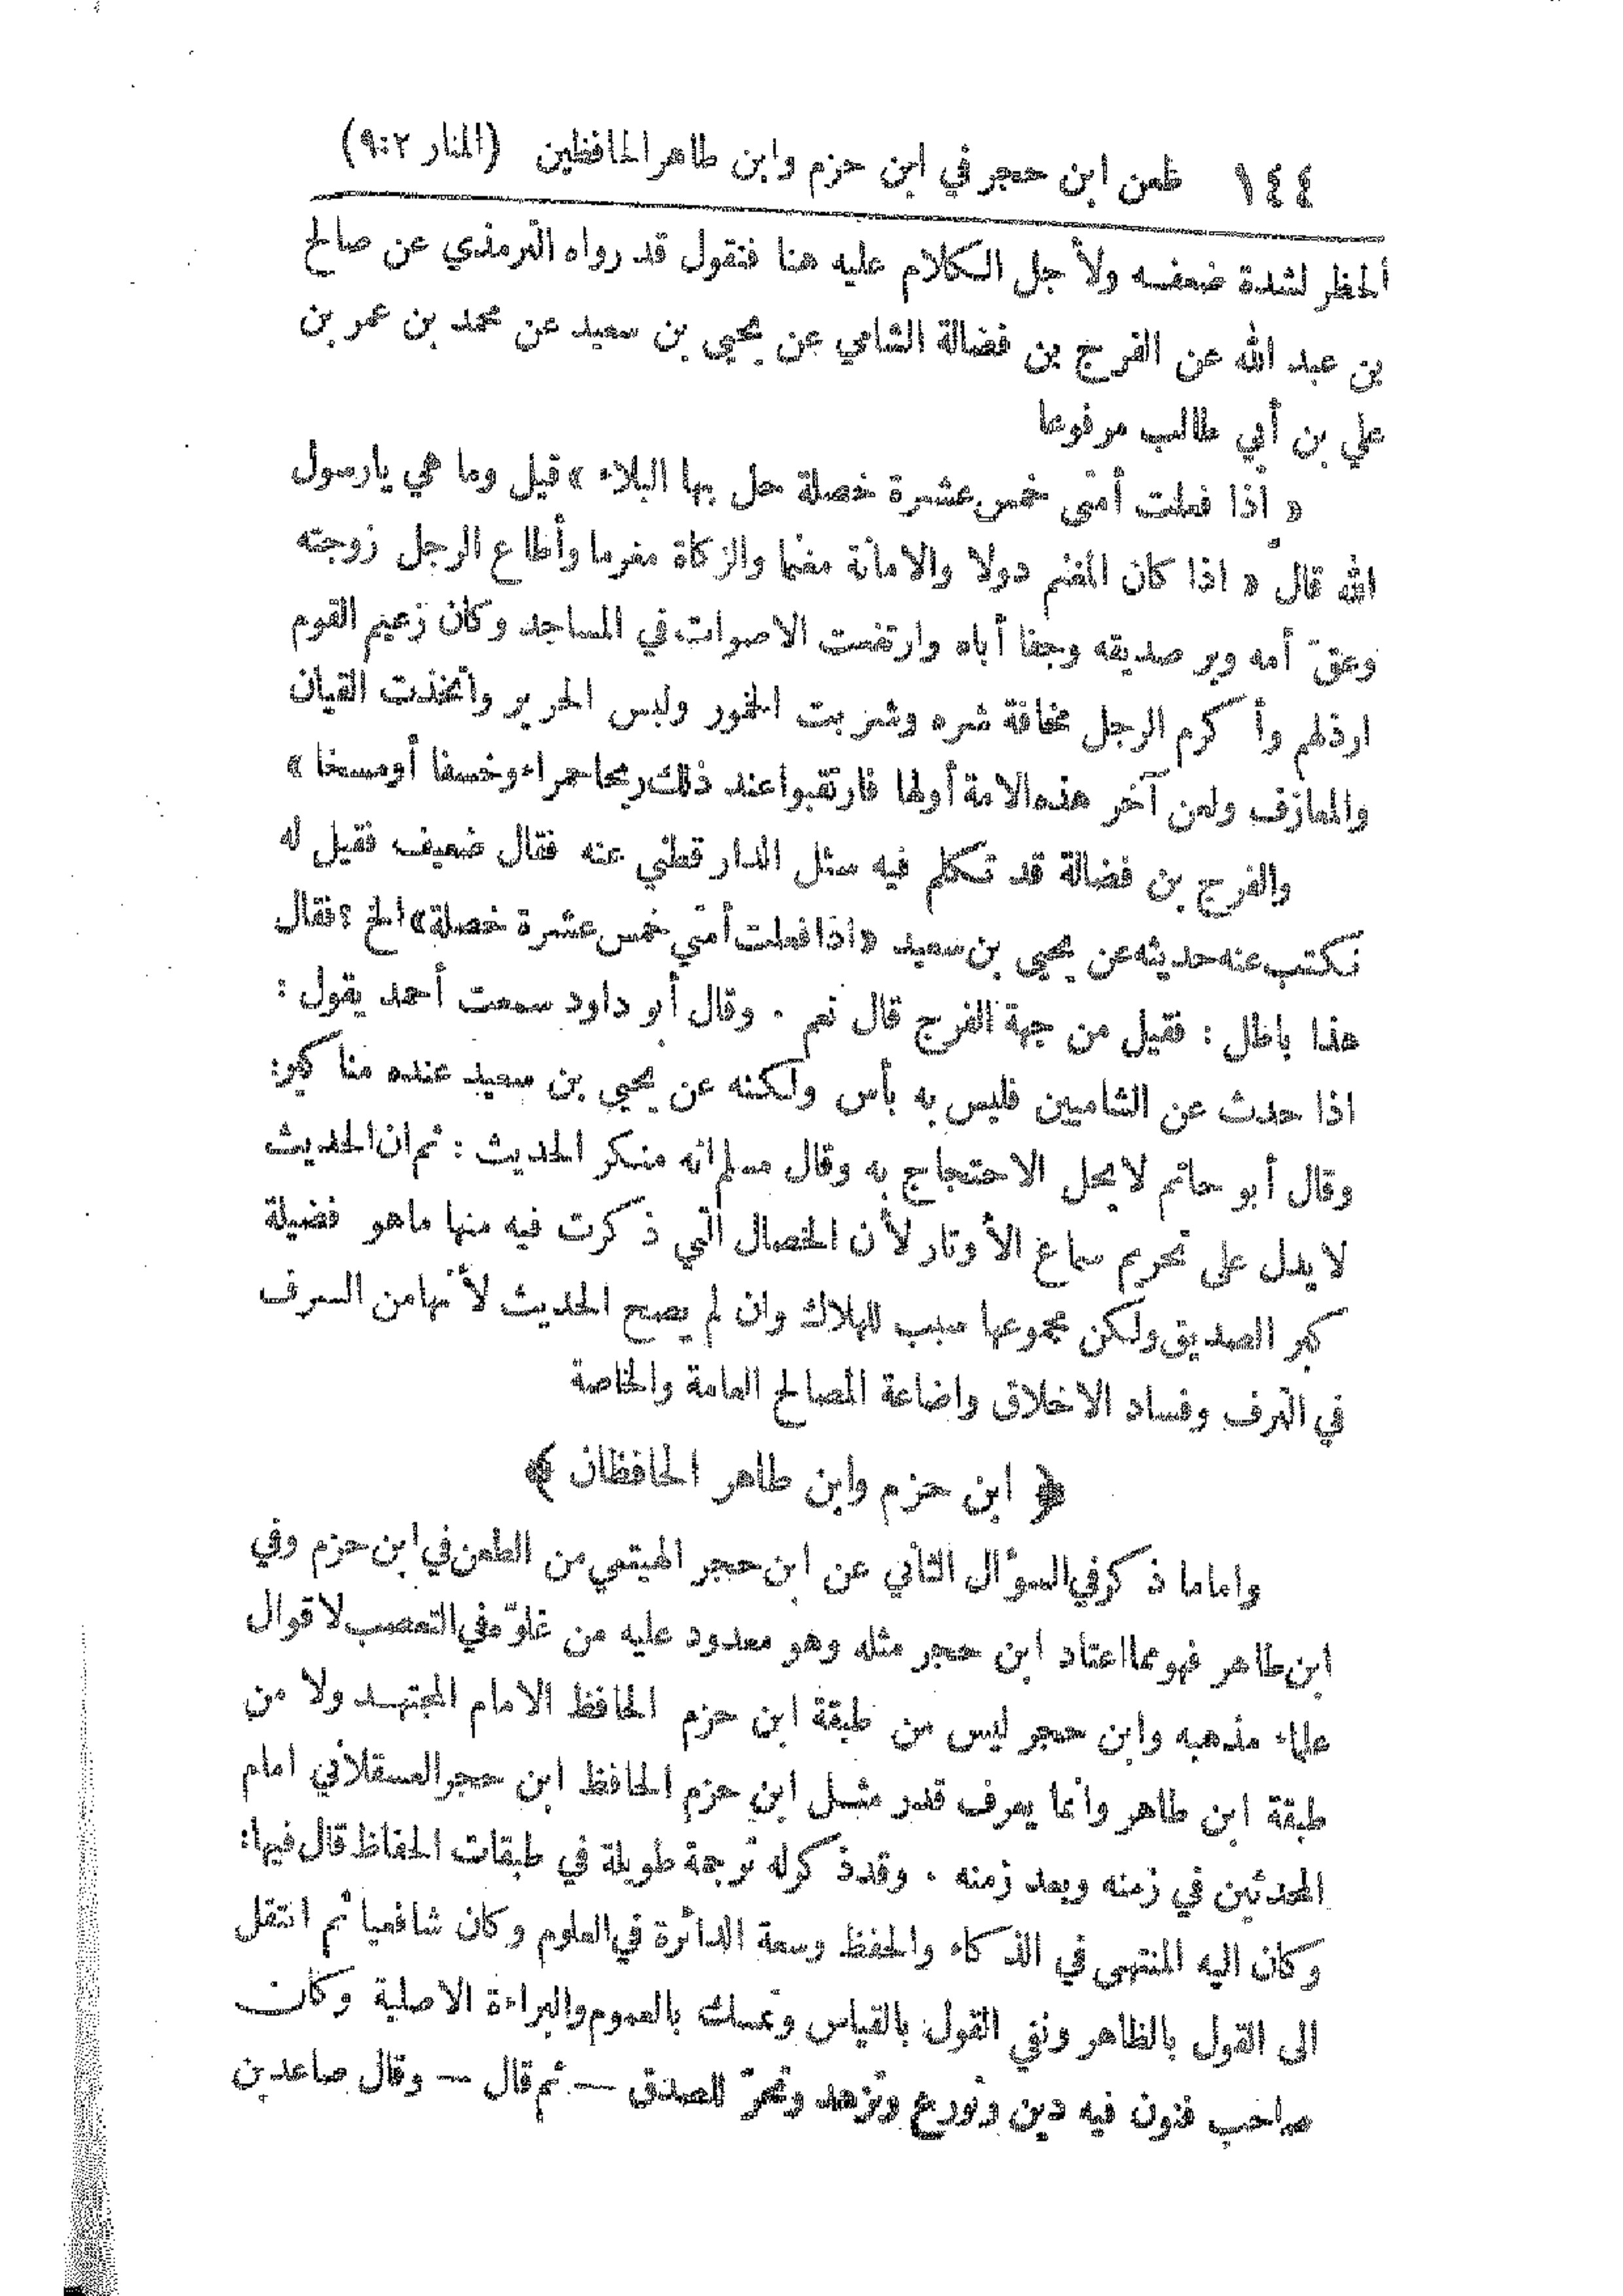 ١٤٤ طعن ابن حجر في ابن حزم وابن طاهر الحافظين (المنار ٢:٩)
الحظر لشدة ضعفه ولأجل الكلام عليه هنا فنقول قد رواه الترمذي عن صالح
بن عبد الله عن الفرج بن فضالة الشامي عن يحيى بن سعيد عن محمد بن عمر بن
علي بن أبي طالب مرفوعا
« اذا فعلت أمتي خمس عشرة خصلة حل بها البلاء » قيل وما هي يارسول
الله قال « اذا كان المغنم دولا والامانة مغنما والزكاة مغرما وأطاع الرجل زوجته
وعقّ أمه وبر صديقه وجفا أباه وارتفعت الاصوات في المساجد وكان زعيم القوم
ارذلهم وأكرم الرجل مخافة شره وشربت الخمور ولبس الحرير واتخذت القيان
والمعازف ولعن آخر هذه الامة أولها فارتقبوا عند ذلك ريحا حمراء وخسفا أو مسخا »
والفرج بن فضالة قد تكلم فيه سئل الدارقطني عنه فقال ضعيف فقيل له
نكتب عنه حديثه عن يحيى بن سعيد «اذا فعلت أمتي خمس عشرة خصلة» الخ ؟ فقال
هذا باطل : فقيل من جهة الفرج قال نعم . وقال أبو داود سمعت أحمد يقول :
اذا حدث عن الشاميين فليس به بأس ولكنه عن يحيى بن سعيد عنده مناكير:
وقال أبو حاتم لا يحل الاحتجاج به وقال مسلم انه منكر الحديث : ثم ان الحديث
لا يدل على تحريم سماع الأوتار لأن الخصال التي ذكرت فيه منها ماهو فضيلة
كبر الصديق ولكن مجموعها سبب للهلاك وان لم يصح الحديث لأنها من السرف
في الترف وفساد الاخلاق واضاعة المصالح العامة والخاصة
﴿ ابن حزم وابن طاهر الحافظان ﴾
واما ما ذكر في السؤال الثاني عن ابن حجر الهيتمي من الطعن في ابن حزم وفي
ابن طاهر فهو مما اعتاد ابن حجر مثله وهو معدود عليه من غلوّه في التعصب لاقوال
علماء مذهبه وابن حجر ليس من طبقة ابن حزم الحافظ الامام المجتهد ولا من
طبقة ابن طاهر وانما يعرف قدر مثل ابن حزم الحافظ ابن حجر العسقلاني امام
المحدثين في زمنه وبعد زمنه . وقد ذكر له ترجمة طويلة في طبقات الحفاظ قال فيها:
وكان اليه المنتهى في الذكاء والحفظ وسعة الدائرة في العلوم وكان شافعيا ثم انتقل
الى القول بالظاهر ونفي القول بالقياس وتمسك بالعموم والبراءة الاصلية وكان
صاحب فنون فيه دين وتورع وتزهد وتحرّ للصدق — ثم قال — وقال صاعد بن